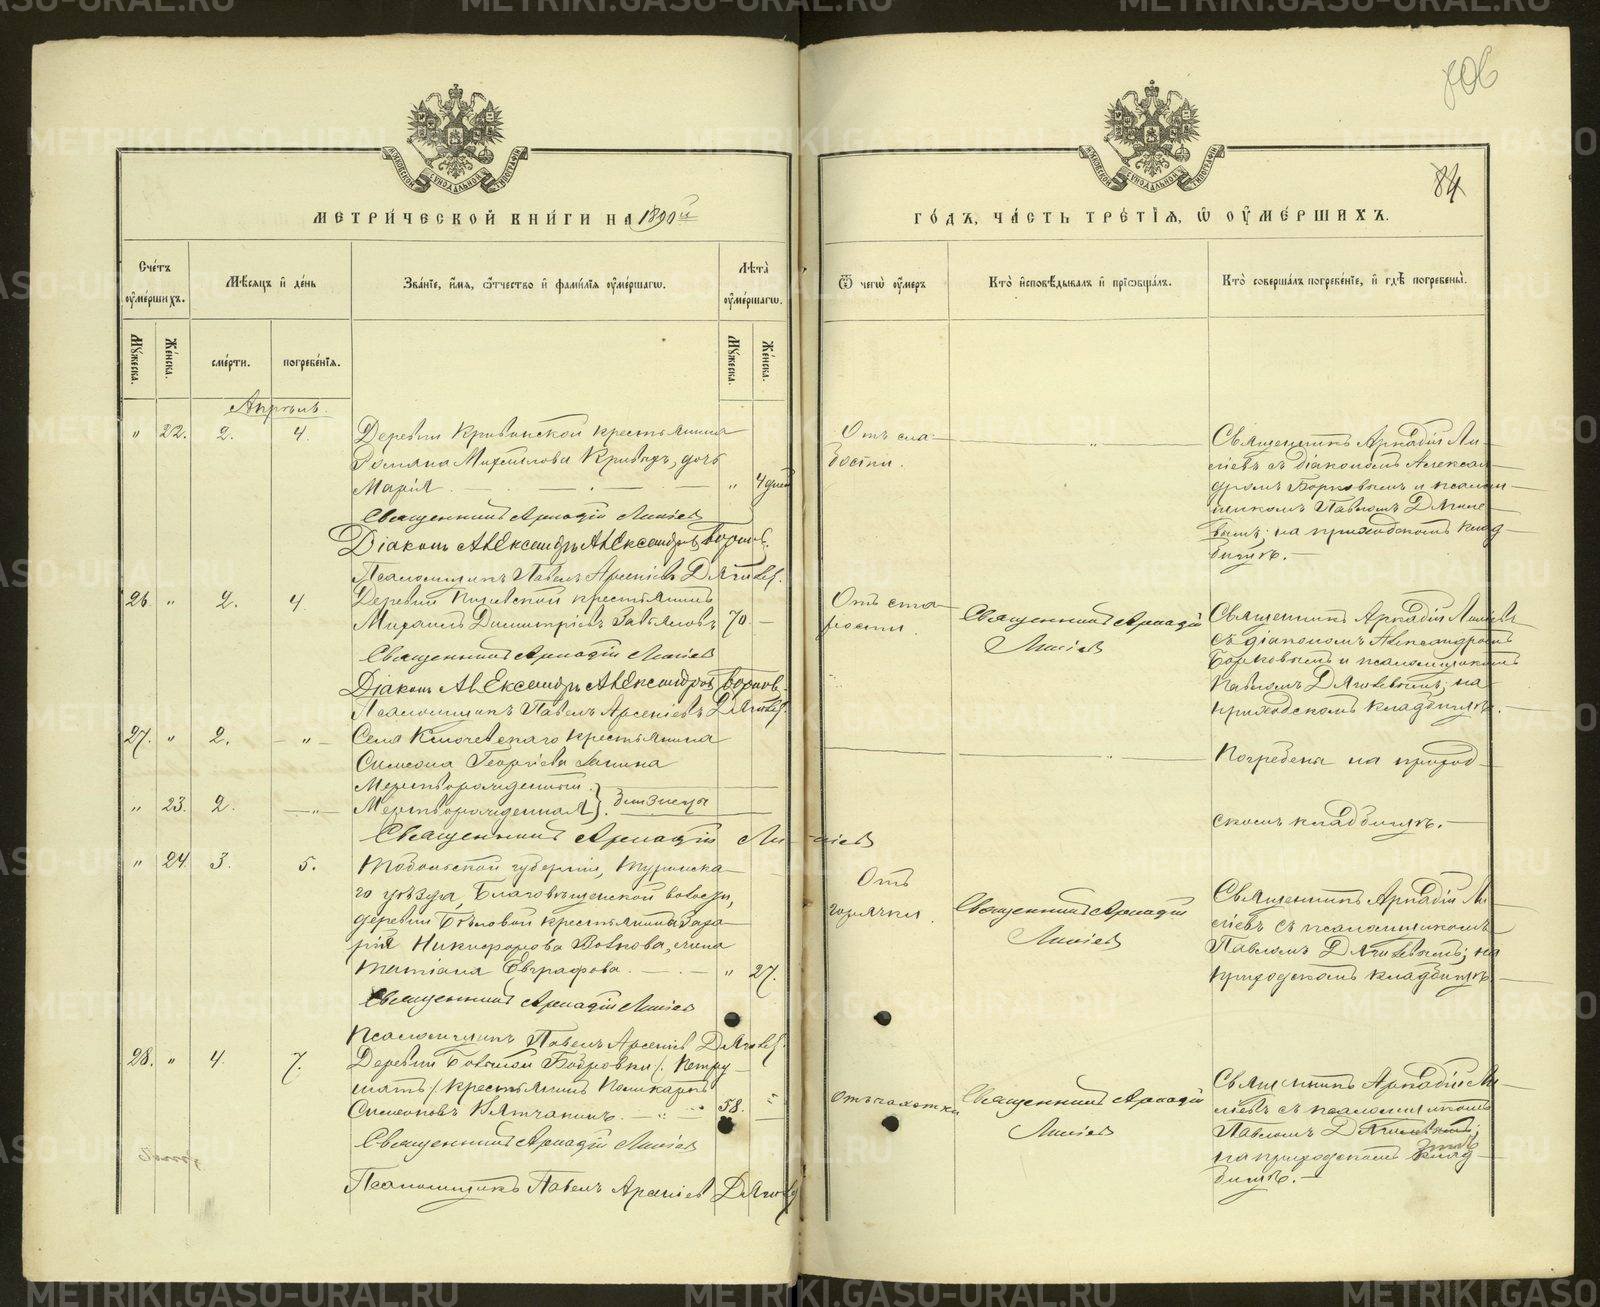 806
84
МЕТРИ́ЧЕСКОЙ КНИ́ГИ НА 1890й
ГО́ДЪ, ЧА́СТЬ ТРЕ́ТІѦ, Ѡ ОУ҆МЕ́РШИХЪ.
Сче́тъ оу҆ме́ршихъ.
Мѣ́сяцъ и҆ де́нь
Зва́ніе, и҆́мя, ѻ҆́тчество и҆ фами́лія оу҆ме́ршагѡ.
Лѣ́та оу҆ме́ршагѡ.
Мꙋ́жеска.
Же́нска.
сме́рти.
погребе́нія.
Мꙋ́жеска.
Же́нска.
Ѿ чегѡ̀ оу҆́меръ
Кто̀ и҆сповѣ́дывалъ и҆ прїѡбща́лъ.
Кто̀ соверша́лъ погребе́нїе, и҆ гдѣ̀ погребены̀.
Апрѣль.
„ 22. 2. 4. Деревни Кривонской крестьянина
Романа Михайлова Кривыхъ, дочь
Марія „ 4 дней
Священникъ Аркадій Линіевъ
Діаконъ Александръ Александровъ Борков.
Псаломщикъ Павелъ Арсеніевъ Дягилев.
Отъ сла-
бости.
Священникъ Аркадій Ли-
ніевъ съ діакономъ Алексан-
дромъ Борковымъ и псалом-
щикомъ Павломъ Дягиле-
вымъ; на приходскомъ клад-
бищѣ.
26. „ 2. 4. Деревни крестьянинъ
Михаилъ Димитріевъ Завьяловъ 70 —
Священникъ Аркадій Линіевъ
Діаконъ Александръ Александровъ Борков.
Псаломщикъ Павелъ Арсеніевъ Дягилев.
Отъ ста-
рости.
Священникъ Аркадій
Линіевъ
Священникъ Аркадій Линіевъ
съ діакономъ Александромъ
Борковымъ и псаломщикомъ
Павломъ Дягилевымъ; на
приходскомъ кладбищѣ.
27. „ 2. — „ — Села Ключевскаго крестьянина
Симеона Георгіева
Мертворожденный
„ 23. 2. — „ — Мертворожденная } близнецы
Священникъ Аркадій Линіевъ
Погребены на приход-
скомъ кладбищѣ.
„ 24. 3. 5. Тобольской губерніи, Туринска-
го уѣзда, Благовѣщенской волости,
деревни Бѣловой крестьянина Заха-
рія Никифорова Волкова, жена
Татіана Евграфова. „ 27.
Священникъ Аркадій Линіевъ
Псаломщикъ Павелъ Арсеніев Дягилев.
Отъ
горячки.
Священникъ Аркадій
Линіевъ
Священникъ Аркадій Ли-
ніевъ съ псаломщикомъ
Павломъ Дягилевымъ; на
приходскомъ кладбищѣ.
28. „ 4. 7. Деревни Большой Бобровки /: Петру-
шатъ:/ крестьянинъ Поликарпъ
Симеоновъ Вятчанинъ. 58. „
Священникъ Аркадій Линіевъ
Псаломщикъ Павелъ Арсеніев Дягилев
Отъ чахотки
Священникъ Аркадій
Линіевъ
Священникъ Аркадій Ли-
ніевъ съ псаломщикомъ
Павломъ Дягилевымъ;
на приходскомъ клад-
бищѣ.
METRIKI.GASO-URAL.RU